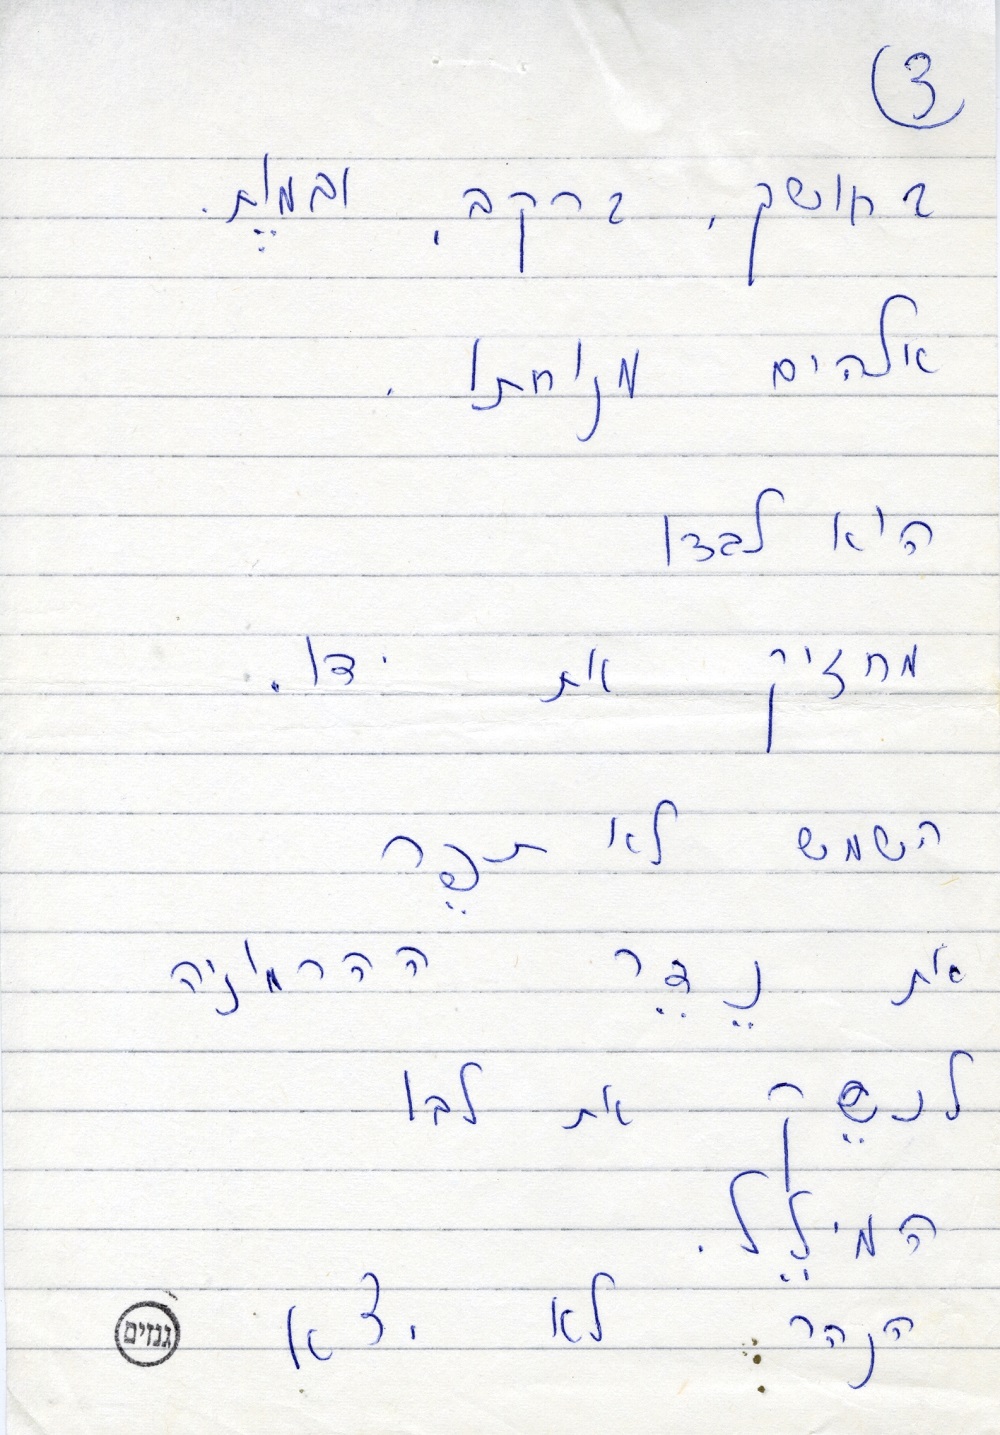 3
בחושך, ברקב, ובמוֶת.
אלהים מנוחתו.
היא לבדו
מחזיק את ידו.
השמש לא תפֵר
את נֶדֶר ההרמוניה
לנשֵק את לבו
המילֵל.
הנהר לא יצא
גנזים